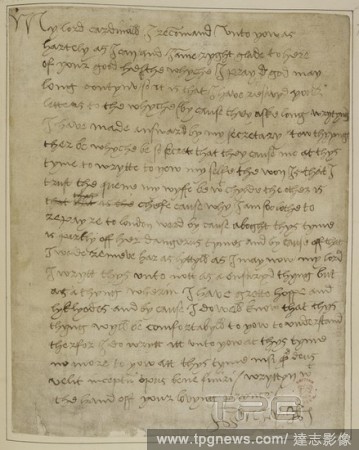 My lord cardinall I recomand unto yow as
hartely as I can and I am ryght glade to here
of your good helthe whyche I pray god may
long contynu so it is that I have resavyd your
letters to the whyche by cause they aske long wrytyng
I have made answard by my secretary tow thyngs
ther be whyche be so secret that they cause me at thys
tyme to wrytte to yow my selfe the won is that I
trust the quene my wyffe be with chylde the other is
chefe cause why I am so lothe to
repayre to london ward by cause aboght thys tyme
is partly of her dangerous tymes and by cause of that
I wolde remeve har as lyttyll as I may now my lord
I wrytt thys unto not as a ensuryd thyng but
as a thyng wherin I have grete hoppe and
lyklyodes and by cause I do well know that thys
thyng wyll be comfortabyll to yow to understand
therfor I do wrytt itt unto yow at thys tyme
no more to yow att thys tyme nisi quod deus
velit inceptum opus bene finiri wryttyn with
the hand off your lovyng
TPG
www.tpgnews.com / 達志影像